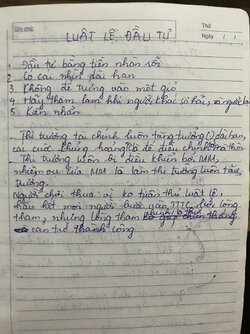 Ghi chú:
Thứ
Ngày / /
LUẬT LỆ ĐẦU TƯ
1 Đầu tư bằng tiền nhàn rỗi
2 Có cái nhìn dài hạn
3 Không để trứng vào một giỏ
4 Hãy tham lam khi người khác sợ hãi,
5 Kiên nhẫn
Thị trường tài chính luôn tăng trưởng () dài hạn,
các cuộc khủng hoảng là để điều chỉnh
Thị trường luôn bị điều khiển bởi MM,
nhiệm vụ của MM là làm thị trường luôn tăng
trưởng.
Người chơi thua vì ko tuân thủ luật lệ,
hầu hết mọi người bước vào TTTC bởi lòng
tham, nhưng lòng tham
cản trở thành công